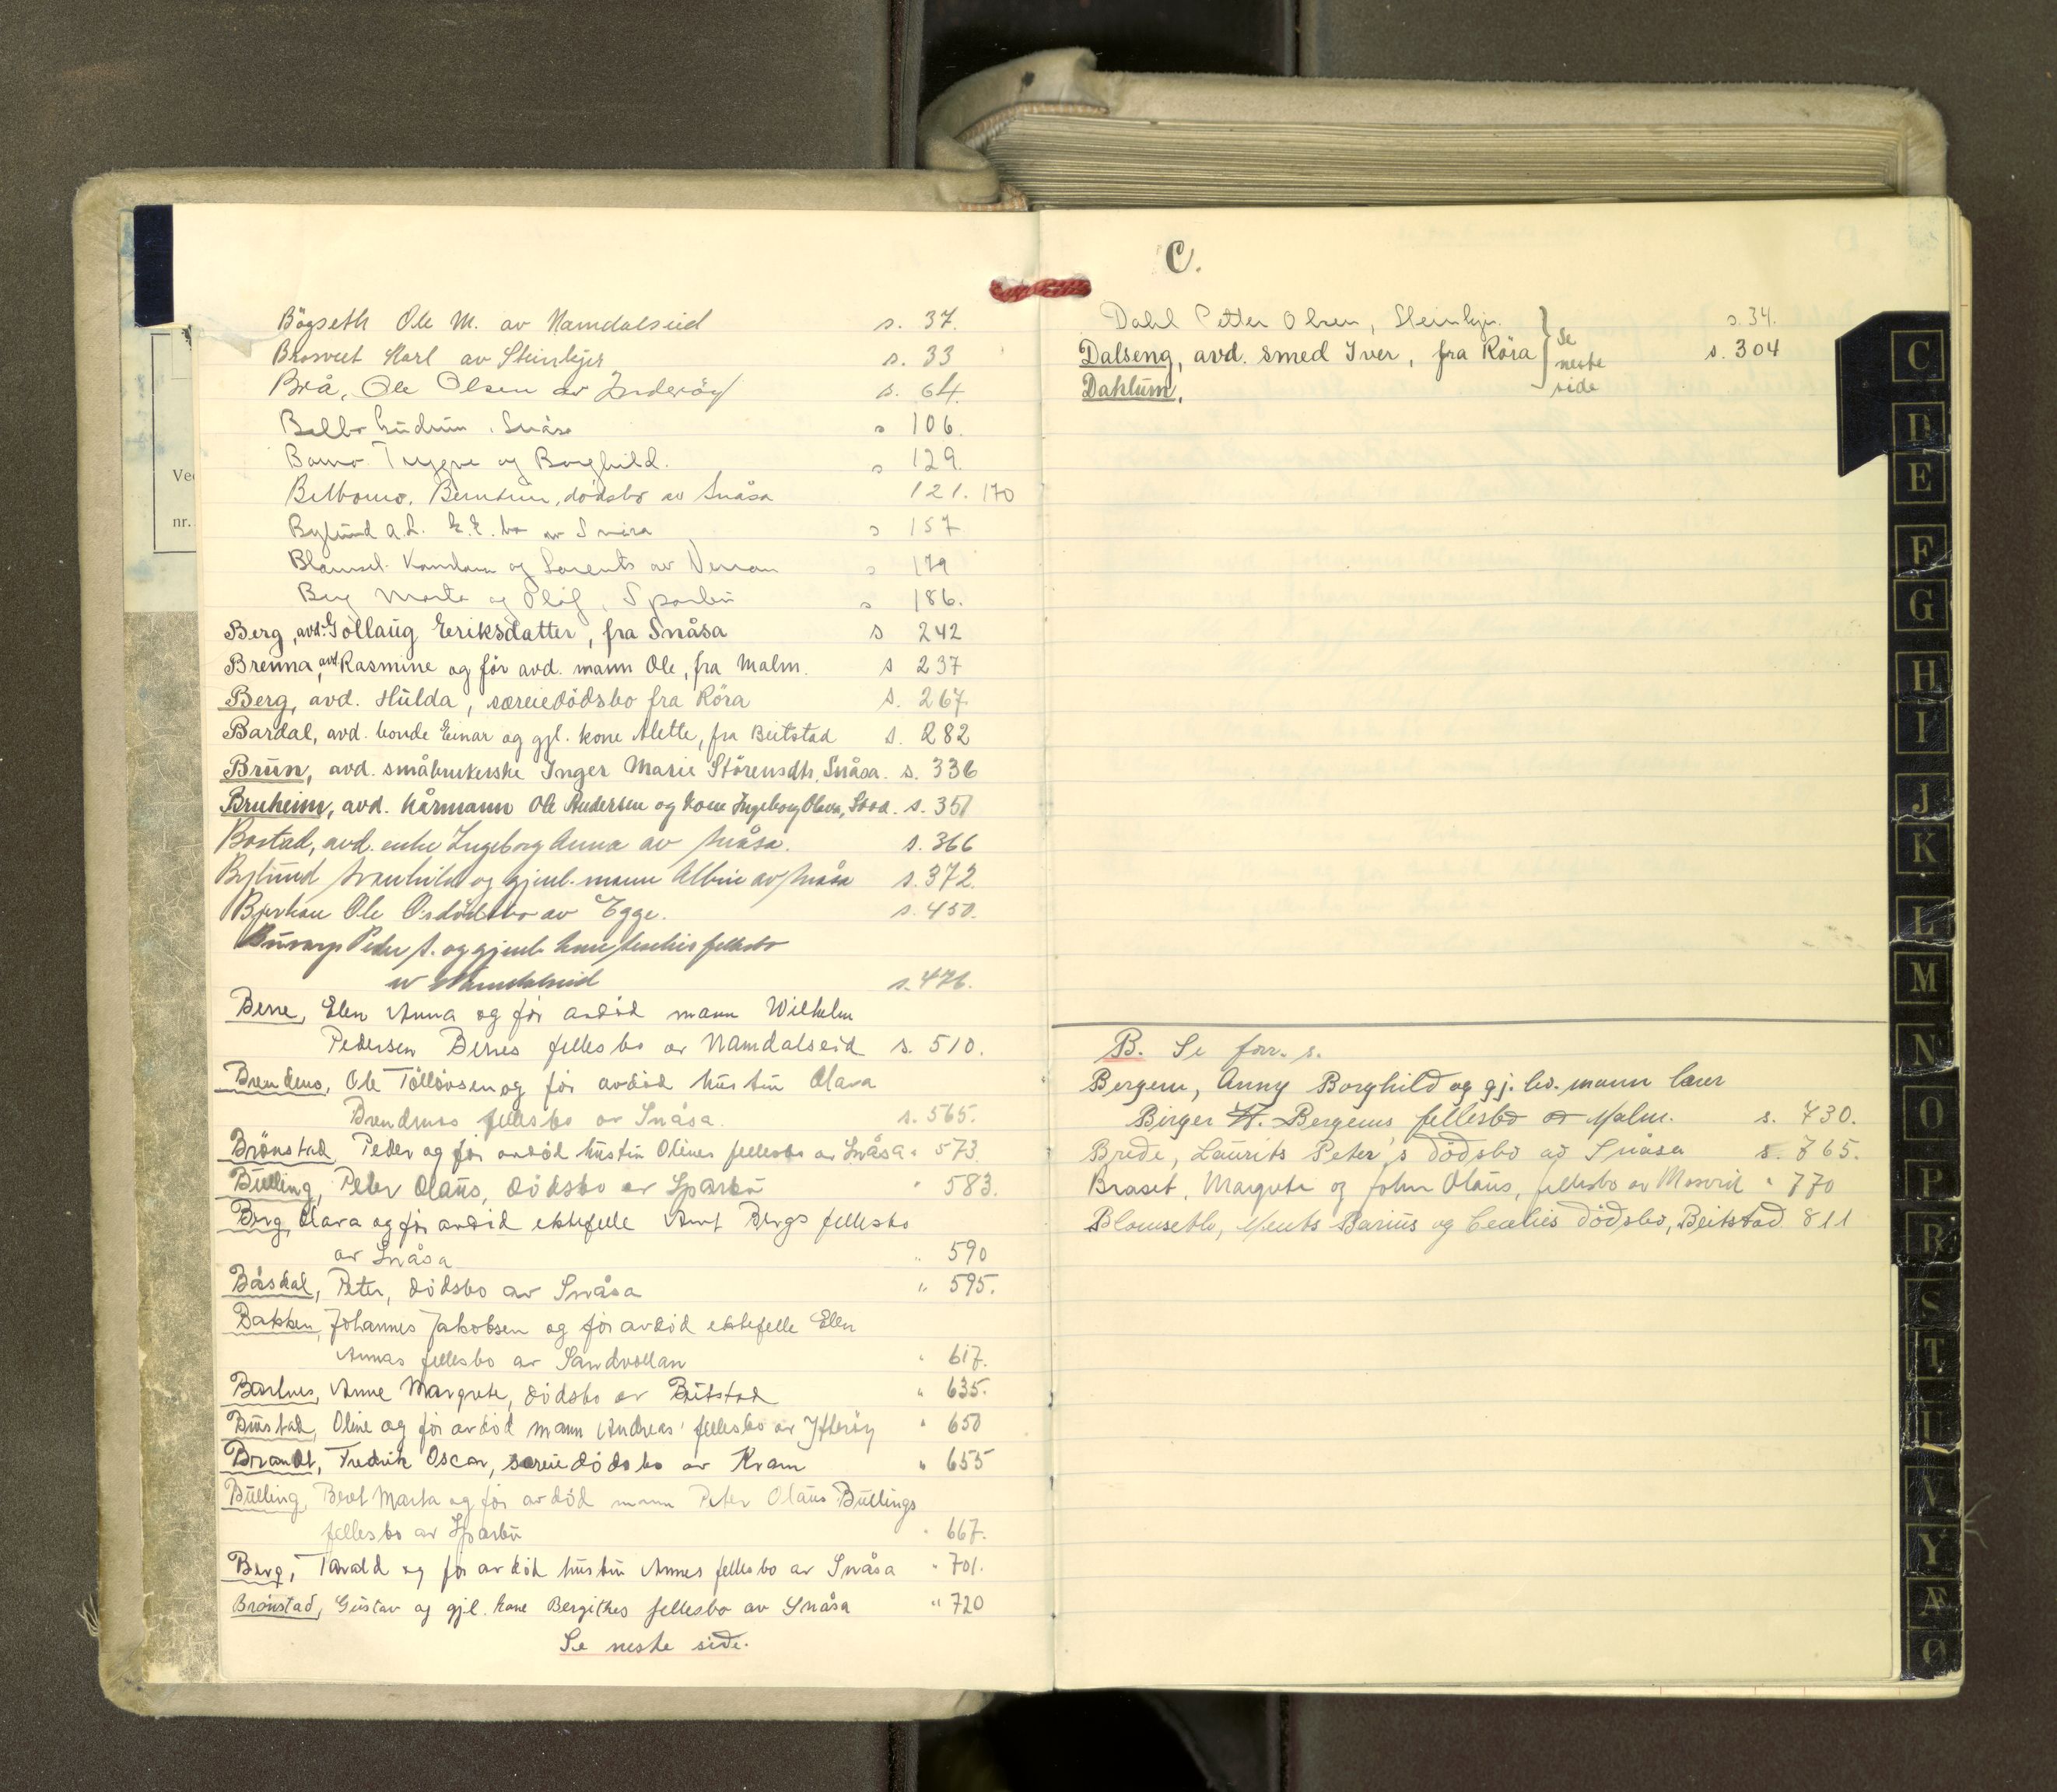 Bögseth Ole M. av Namdalseid s. 37.
Brosveet Karl av Steinkjer s. 33
Brå, Ole Olsen av Inderöy s. 64.
Gudrun, Snåsa s 106.
Trygve og Borghild. s 129.
Belbomo, Berntine, dödsbo av Snåsa 121. 170
Bylund A.L. s 157
og Lorents av Verran s 179
Berg Marta og Olaf, Sparbu s 186.
Berg, avd. Gollaug Eriksdatter, fra Snåsa s 242
Brenna, avd. Rasmine og för avd. mann Ole, fra Malm. s 237
Berg, avd. Hulda, særeiedödsbo fra Röra s. 267
Bardal, avd. bonde Einar og gjl. kone Alette, fra Beitstad s. 282
Brun, avd. småbrukerske Inger Marie Störensdtr, Snåsa. s. 336
Bruheim, avd. kårmann Ole Andersen og kone Ingeborg Olava, Stod. s. 351
Bostad, avd. enke Ingeborg Anna av Snåsa. s. 366
Bylund Svanhild og gjenl. mann Albin av Snåsa s. 372.
Bjerkan Ole Os dödsbo av Egge. s. 450.
Peder S. og gjenl. kone fellesbo
av Namdalseid s. 476.
Berre, Elen Anna og för avdöd mann Wilhelm
Pedersen Berres fellesbo av Namdalseid s. 510.
Brendmo, Ole Tollövsen og för avdöd hustru Olava
Brendmos fellesbo av Snåsa. s. 565.
Brönstad, Peder og för avdöd hustru Olines fellesbo av Snåsa " 573.
Bulling, Peter Olaus, dödsbo av Sparbu " 583.
Berg, Olava og för avdöd ektefelle Arnt Bergs fellesbo
av Snåsa " 590
Båsdal, Peter, dödsbo av Snåsa " 595.
Bakken, Johannes Jakobsen og för avdöd ektefelle Elen
Annas fellesbo av Sandvollan " 617.
Barlnes, Anne Margrete, dödsbo av Beitstad " 635.
Bustad, Oline og för avdöd mann Andreas' fellesbo av Ytteröy " 650
Brandt, Fredrik Oscar, særeiedödsbo av Kvam " 655
Bulling, Beret Marta og för avdöd mann Peter Olaus Bullings
fellesbo av Sparbu " 667.
Berg, Tarald og för avdöd hustru Annes fellesbo av Snåsa " 701.
Brönstad, Gustav og gjl. kone Bergithes fellesbo av Snåsa " 720
Se neste side.
Ved
nr.
C.
Dahl Petter Olsen, Steinkjer. s. 34.
Dalseng, avd. smed Iver, fra Röra s. 304
Dahlum.
Se
neste
side
B. Se forr. s.
Bergem, Anny Borghild og gj. lev. mann lærer
Birger A. Bergems fellesbo av Malm. s. 730.
Brede, Laurits Peter's dödsbo av Snåsa s. 765.
Braset, Margrete og John Olaus, fellesbo av Mosvik " 770
Blomseth, Ments Barius og Cecelies dödsbo, Beitstad 811
C
D
E
F
G
H
I
J
K
L
M
N
O
P
R
S
T
U
V
Y
Æ
Ø